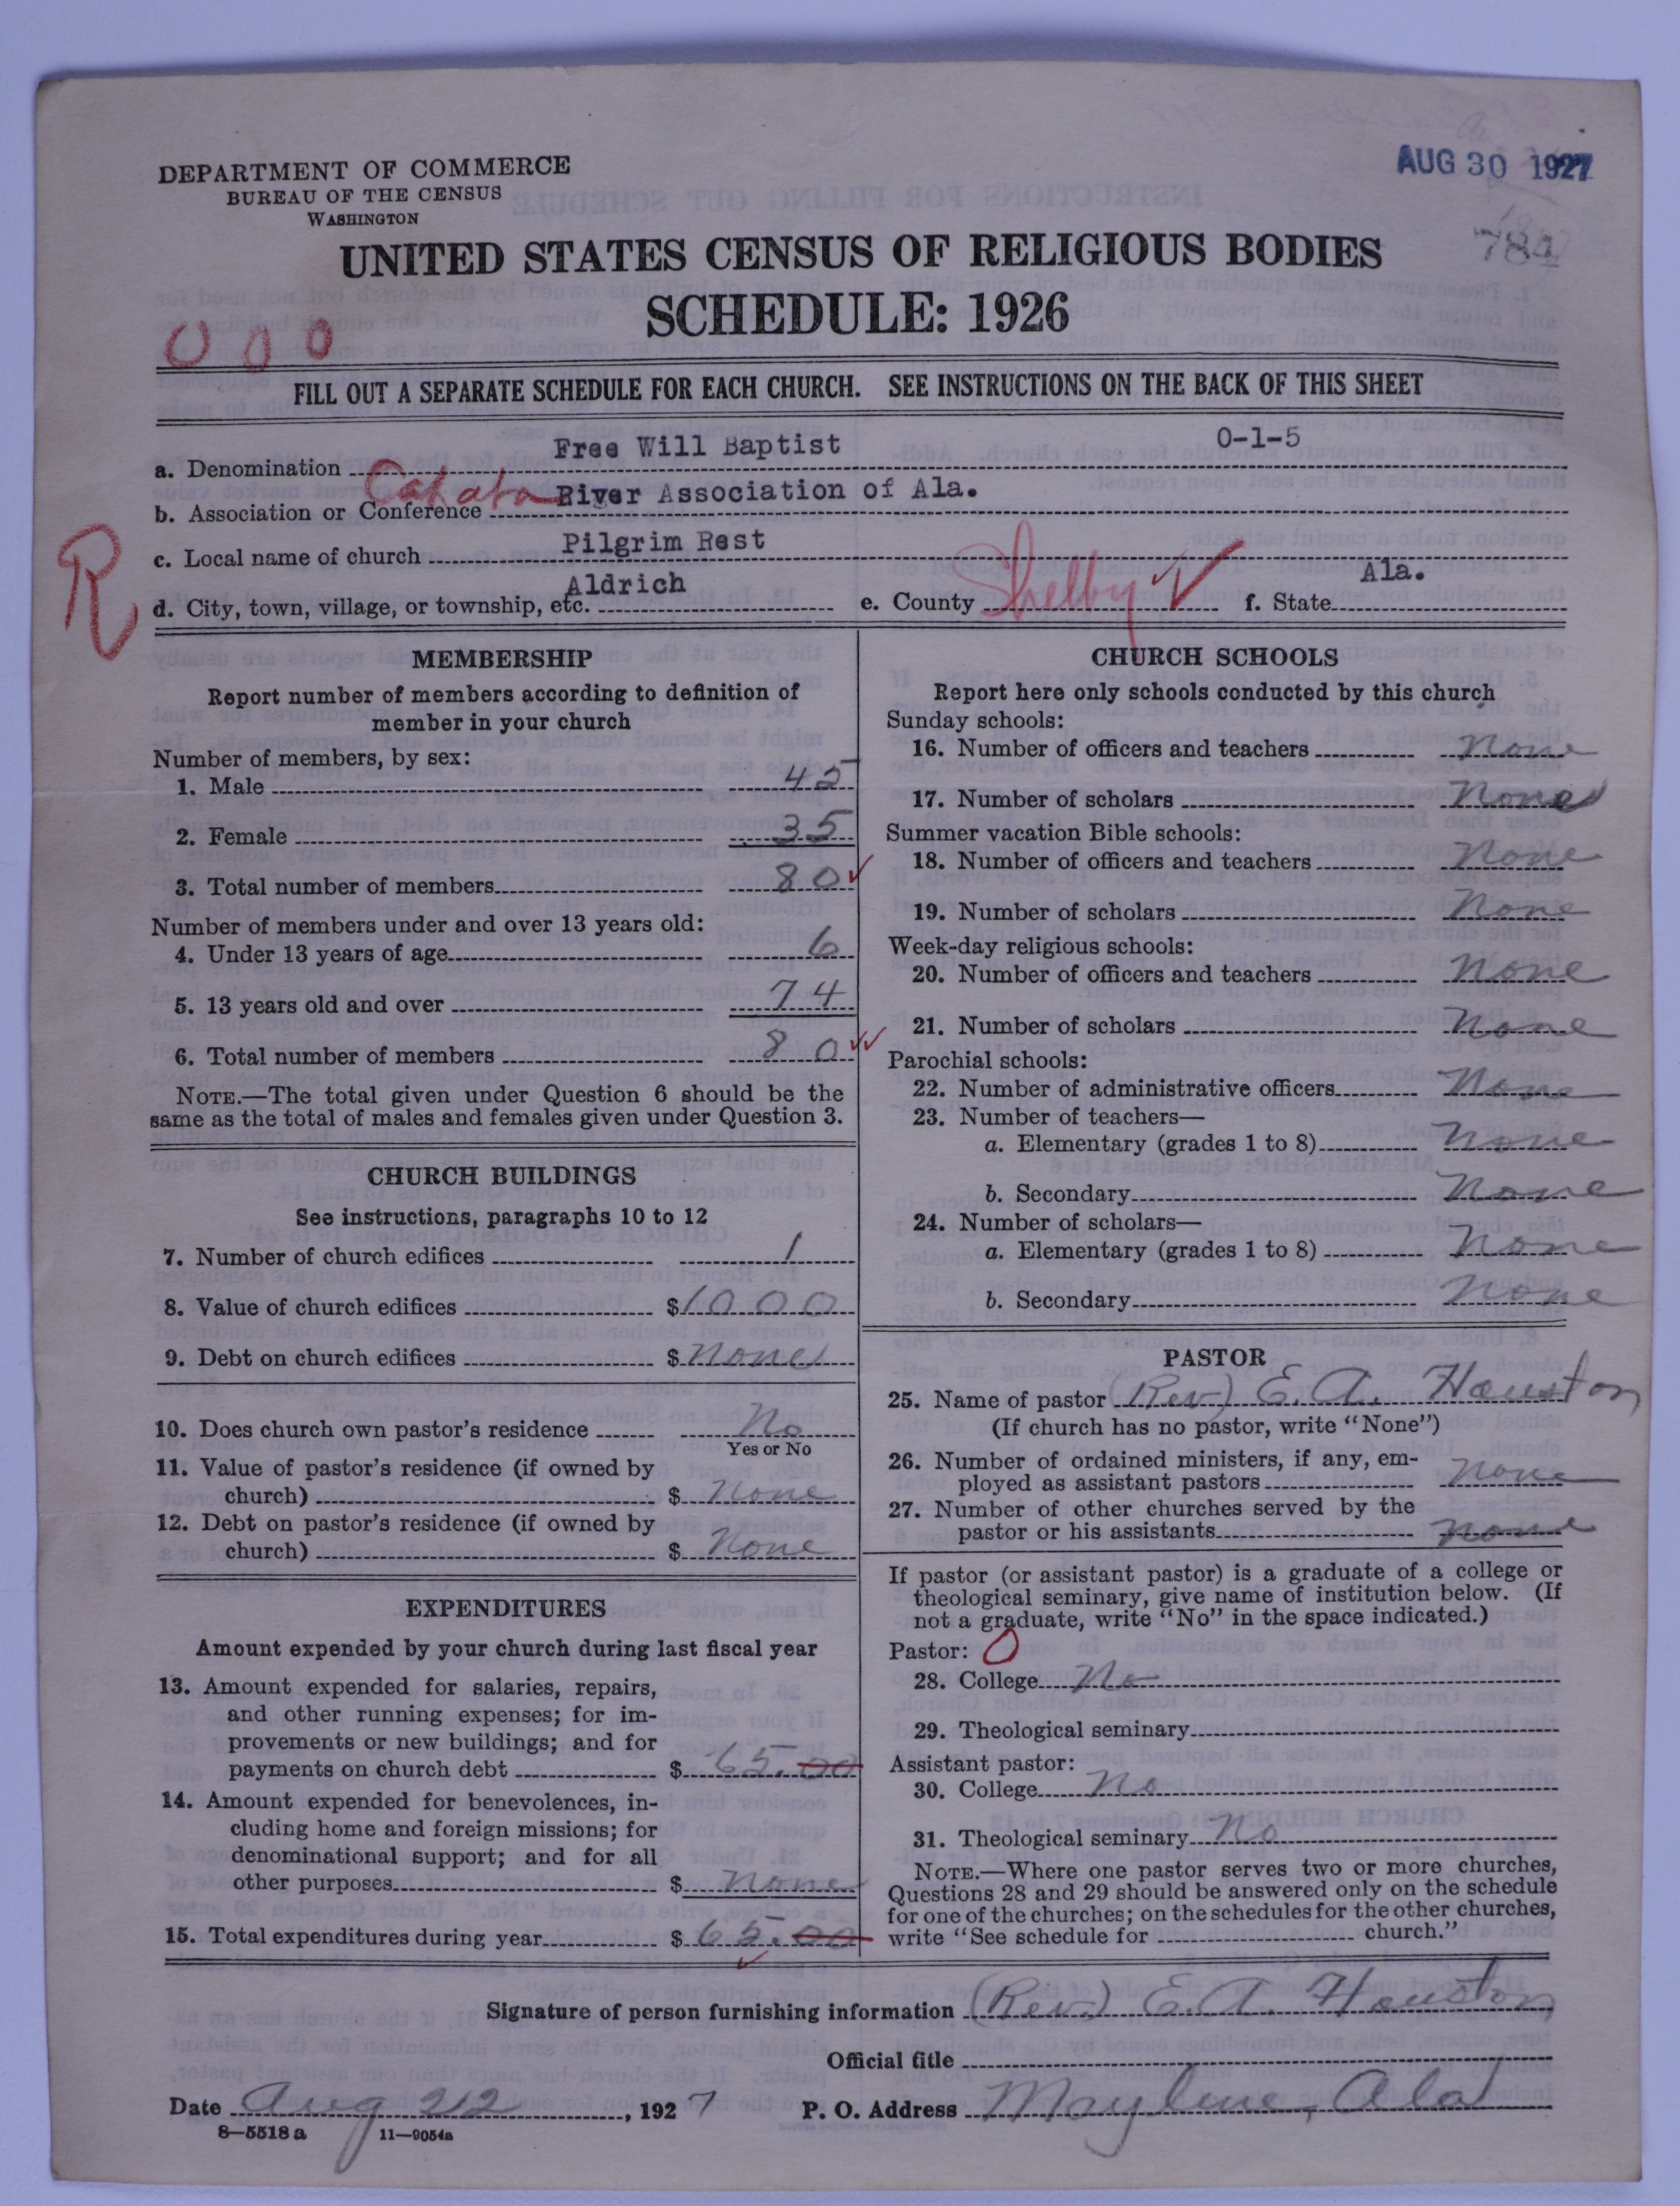 AUG 30 1927
784
DEPARTMENT OF COMMERCE
BUREAU OF THE CENSUS
WASHINGTON
UNITED STATES CENSUS OF RELIGIOUS BODIES
SCHEDULE: 1926
0 0 0
FILL OUT A SEPARATE SCHEDULE FOR EACH CHURCH. SEE INSTRUCTIONS ON THE BACK OF THIS SHEET
a. Denomination Free Will Baptist 0-1-5
b. Association or Conference Cahaba River Association of Ala.
R
c. Local name of church Pilgrim Rest
d. City, town, village, or township, etc. Aldrich e. County Shelby ✓ f. State Ala.
MEMBERSHIP
Report number of members according to definition of
member in your church
Number of members, by sex:
1. Male 45
2. Female 35
3. Total number of members 80 ✓
Number of members under and over 13 years old:
4. Under 13 years of age 6
5. 13 years old and over 74
6. Total number of members 80 ✓✓
NOTE.—The total given under Question 6 should be the
same as the total of males and females given under Question 3.
CHURCH BUILDINGS
See instructions, paragraphs 10 to 12
7. Number of church edifices 1
8. Value of church edifices $1000
9. Debt on church edifices $ none
10. Does church own pastor's residence No
Yes or No
11. Value of pastor's residence (if owned by
church) $ None
12. Debt on pastor's residence (if owned by
church) $ None
EXPENDITURES
Amount expended by your church during last fiscal year
13. Amount expended for salaries, repairs,
and other running expenses; for im-
provements or new buildings; and for
payments on church debt $ 65.00
14. Amount expended for benevolences, in-
cluding home and foreign missions; for
denominational support; and for all
other purposes $ None
15. Total expenditures during year $ 65.00
✓
CHURCH SCHOOLS
Report here only schools conducted by this church
Sunday schools:
16. Number of officers and teachers None
17. Number of scholars None
Summer vacation Bible schools:
18. Number of officers and teachers None
19. Number of scholars None
Week-day religious schools:
20. Number of officers and teachers None
21. Number of scholars None
Parochial schools:
22. Number of administrative officers None
23. Number of teachers—
a. Elementary (grades 1 to 8) None
b. Secondary None
24. Number of scholars—
a. Elementary (grades 1 to 8) None
b. Secondary None
PASTOR
25. Name of pastor (Rev) E. A. Houston
(If church has no pastor, write "None")
26. Number of ordained ministers, if any, em-
ployed as assistant pastors None
27. Number of other churches served by the
pastor or his assistants None
If pastor (or assistant pastor) is a graduate of a college or
theological seminary, give name of institution below. (If
not a graduate, write "No" in the space indicated.)
Pastor: 0
28. College No
29. Theological seminary
Assistant pastor:
30. College No
31. Theological seminary No
NOTE.—Where one pastor serves two or more churches,
Questions 28 and 29 should be answered only on the schedule
for one of the churches; on the schedules for the other churches,
write "See schedule for church."
Signature of person furnishing information (Rev.) E. A. Houston
Official title
Date Aug 22, 1927 P. O. Address Maylene, Ala
8—5518 a 11—9054a